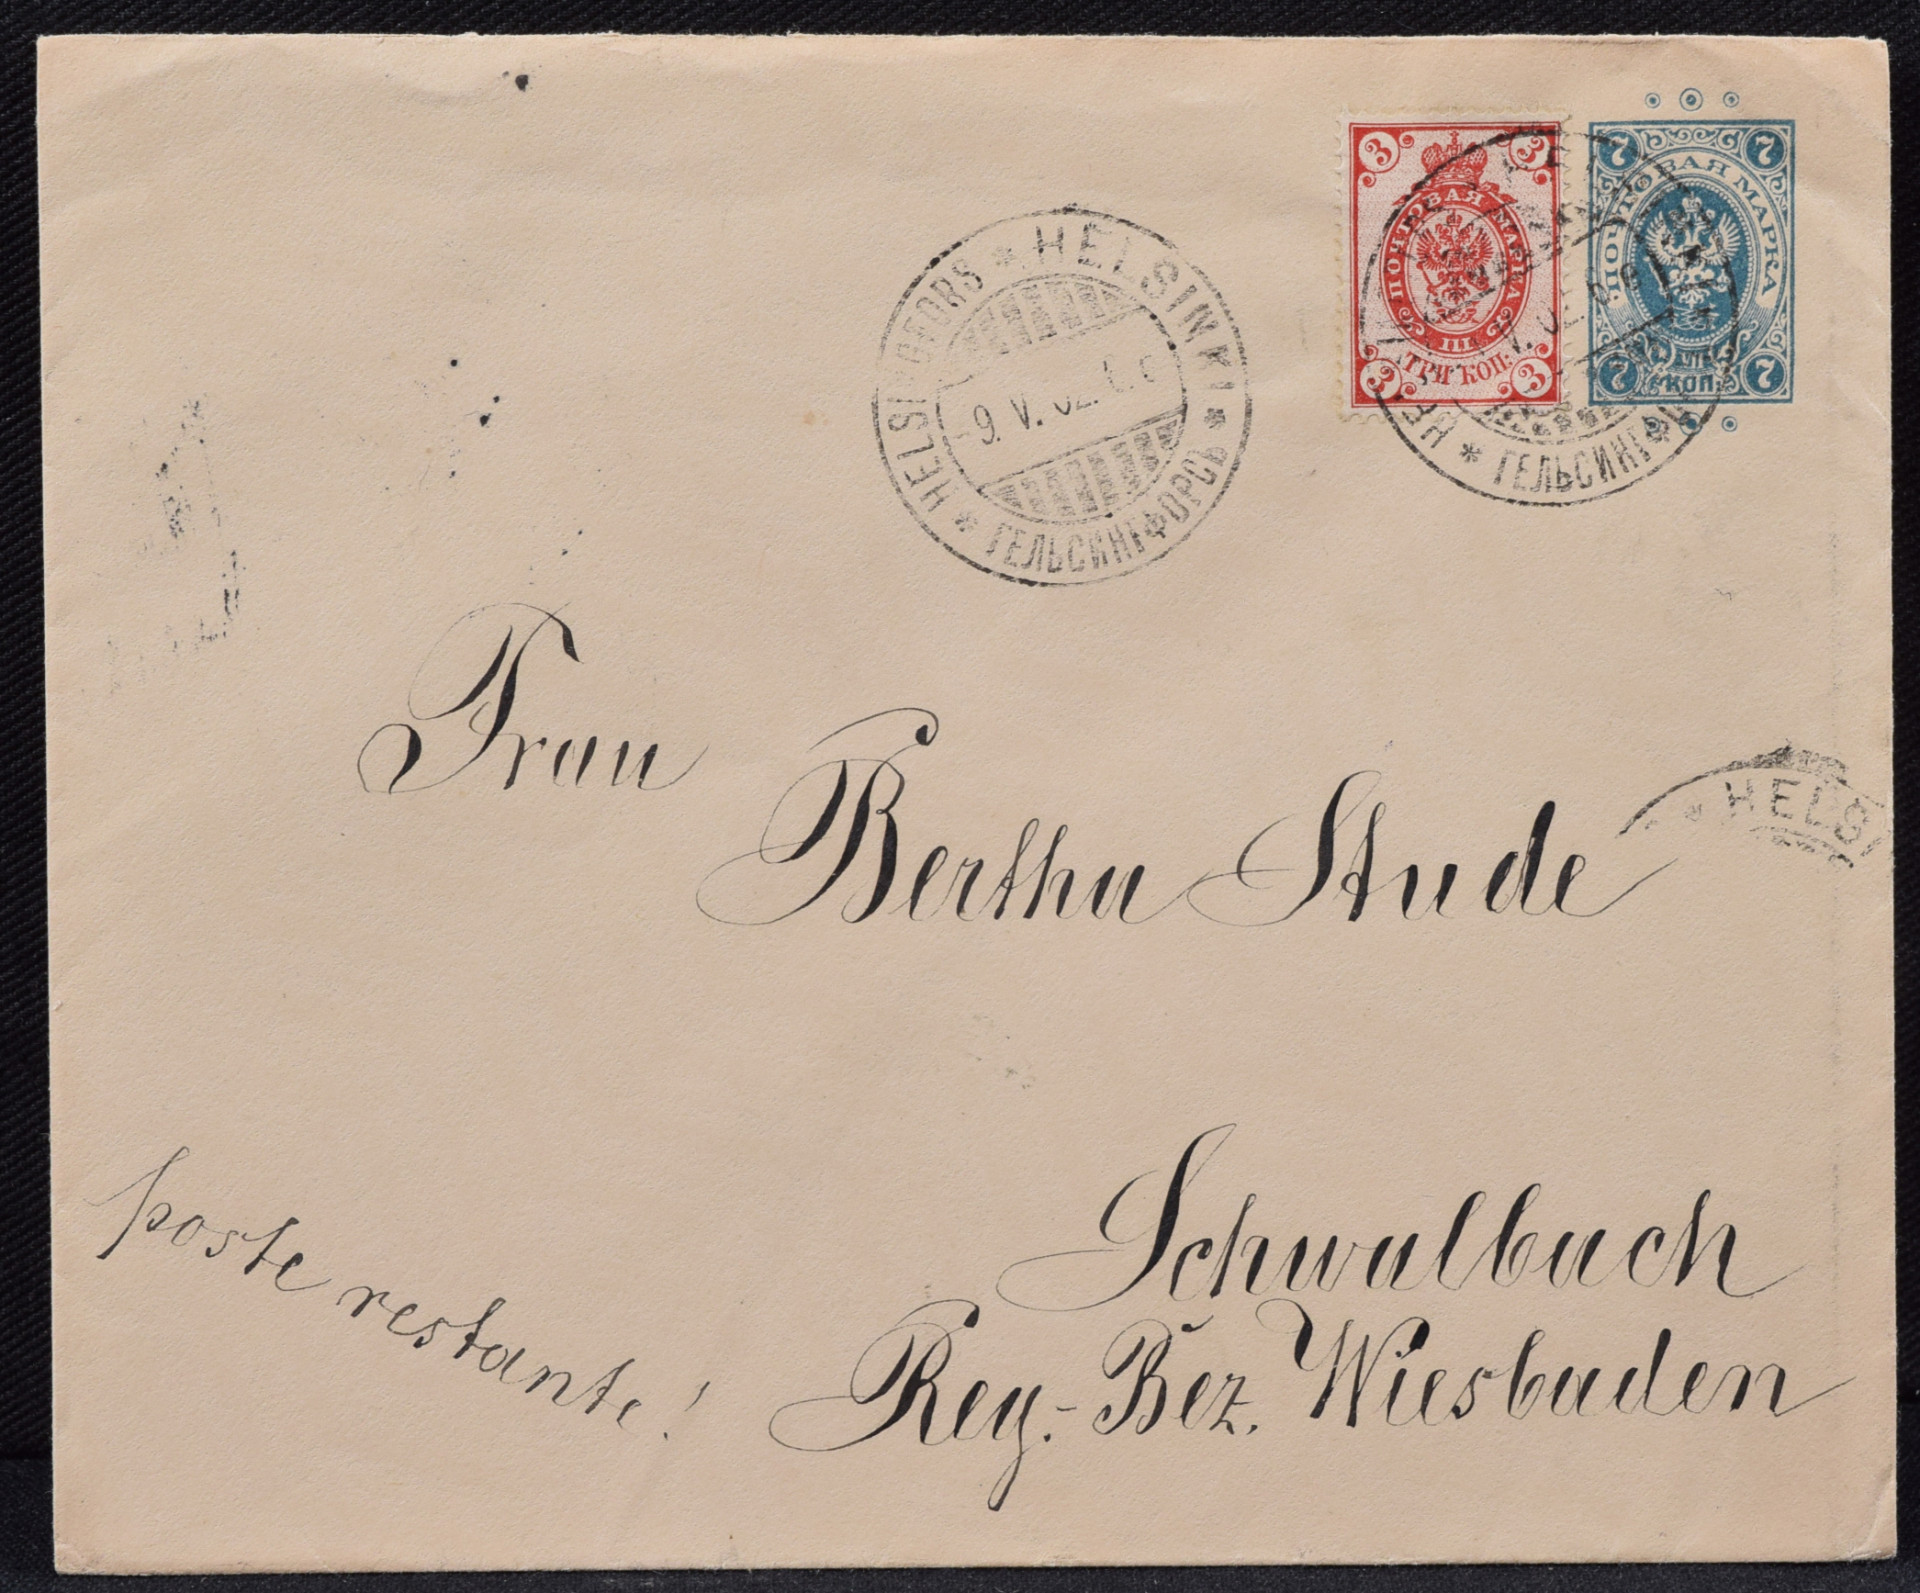 3 3
ПОЧТОВАЯ МАРКА
III
ТРИ КОП:
3 3
7 7
ПОЧТОВАЯ МАРКА
КОП:
7 7
HELSINGFORS * HELSINKI * ГЕЛЬСИНГФОРСЬ *
9. V. 02.
* ГЕЛЬСИНГФ
Frau
Bertha Stude
* HELSI
Schwalbach
Reg.-Bez. Wiesbaden
poste restante!